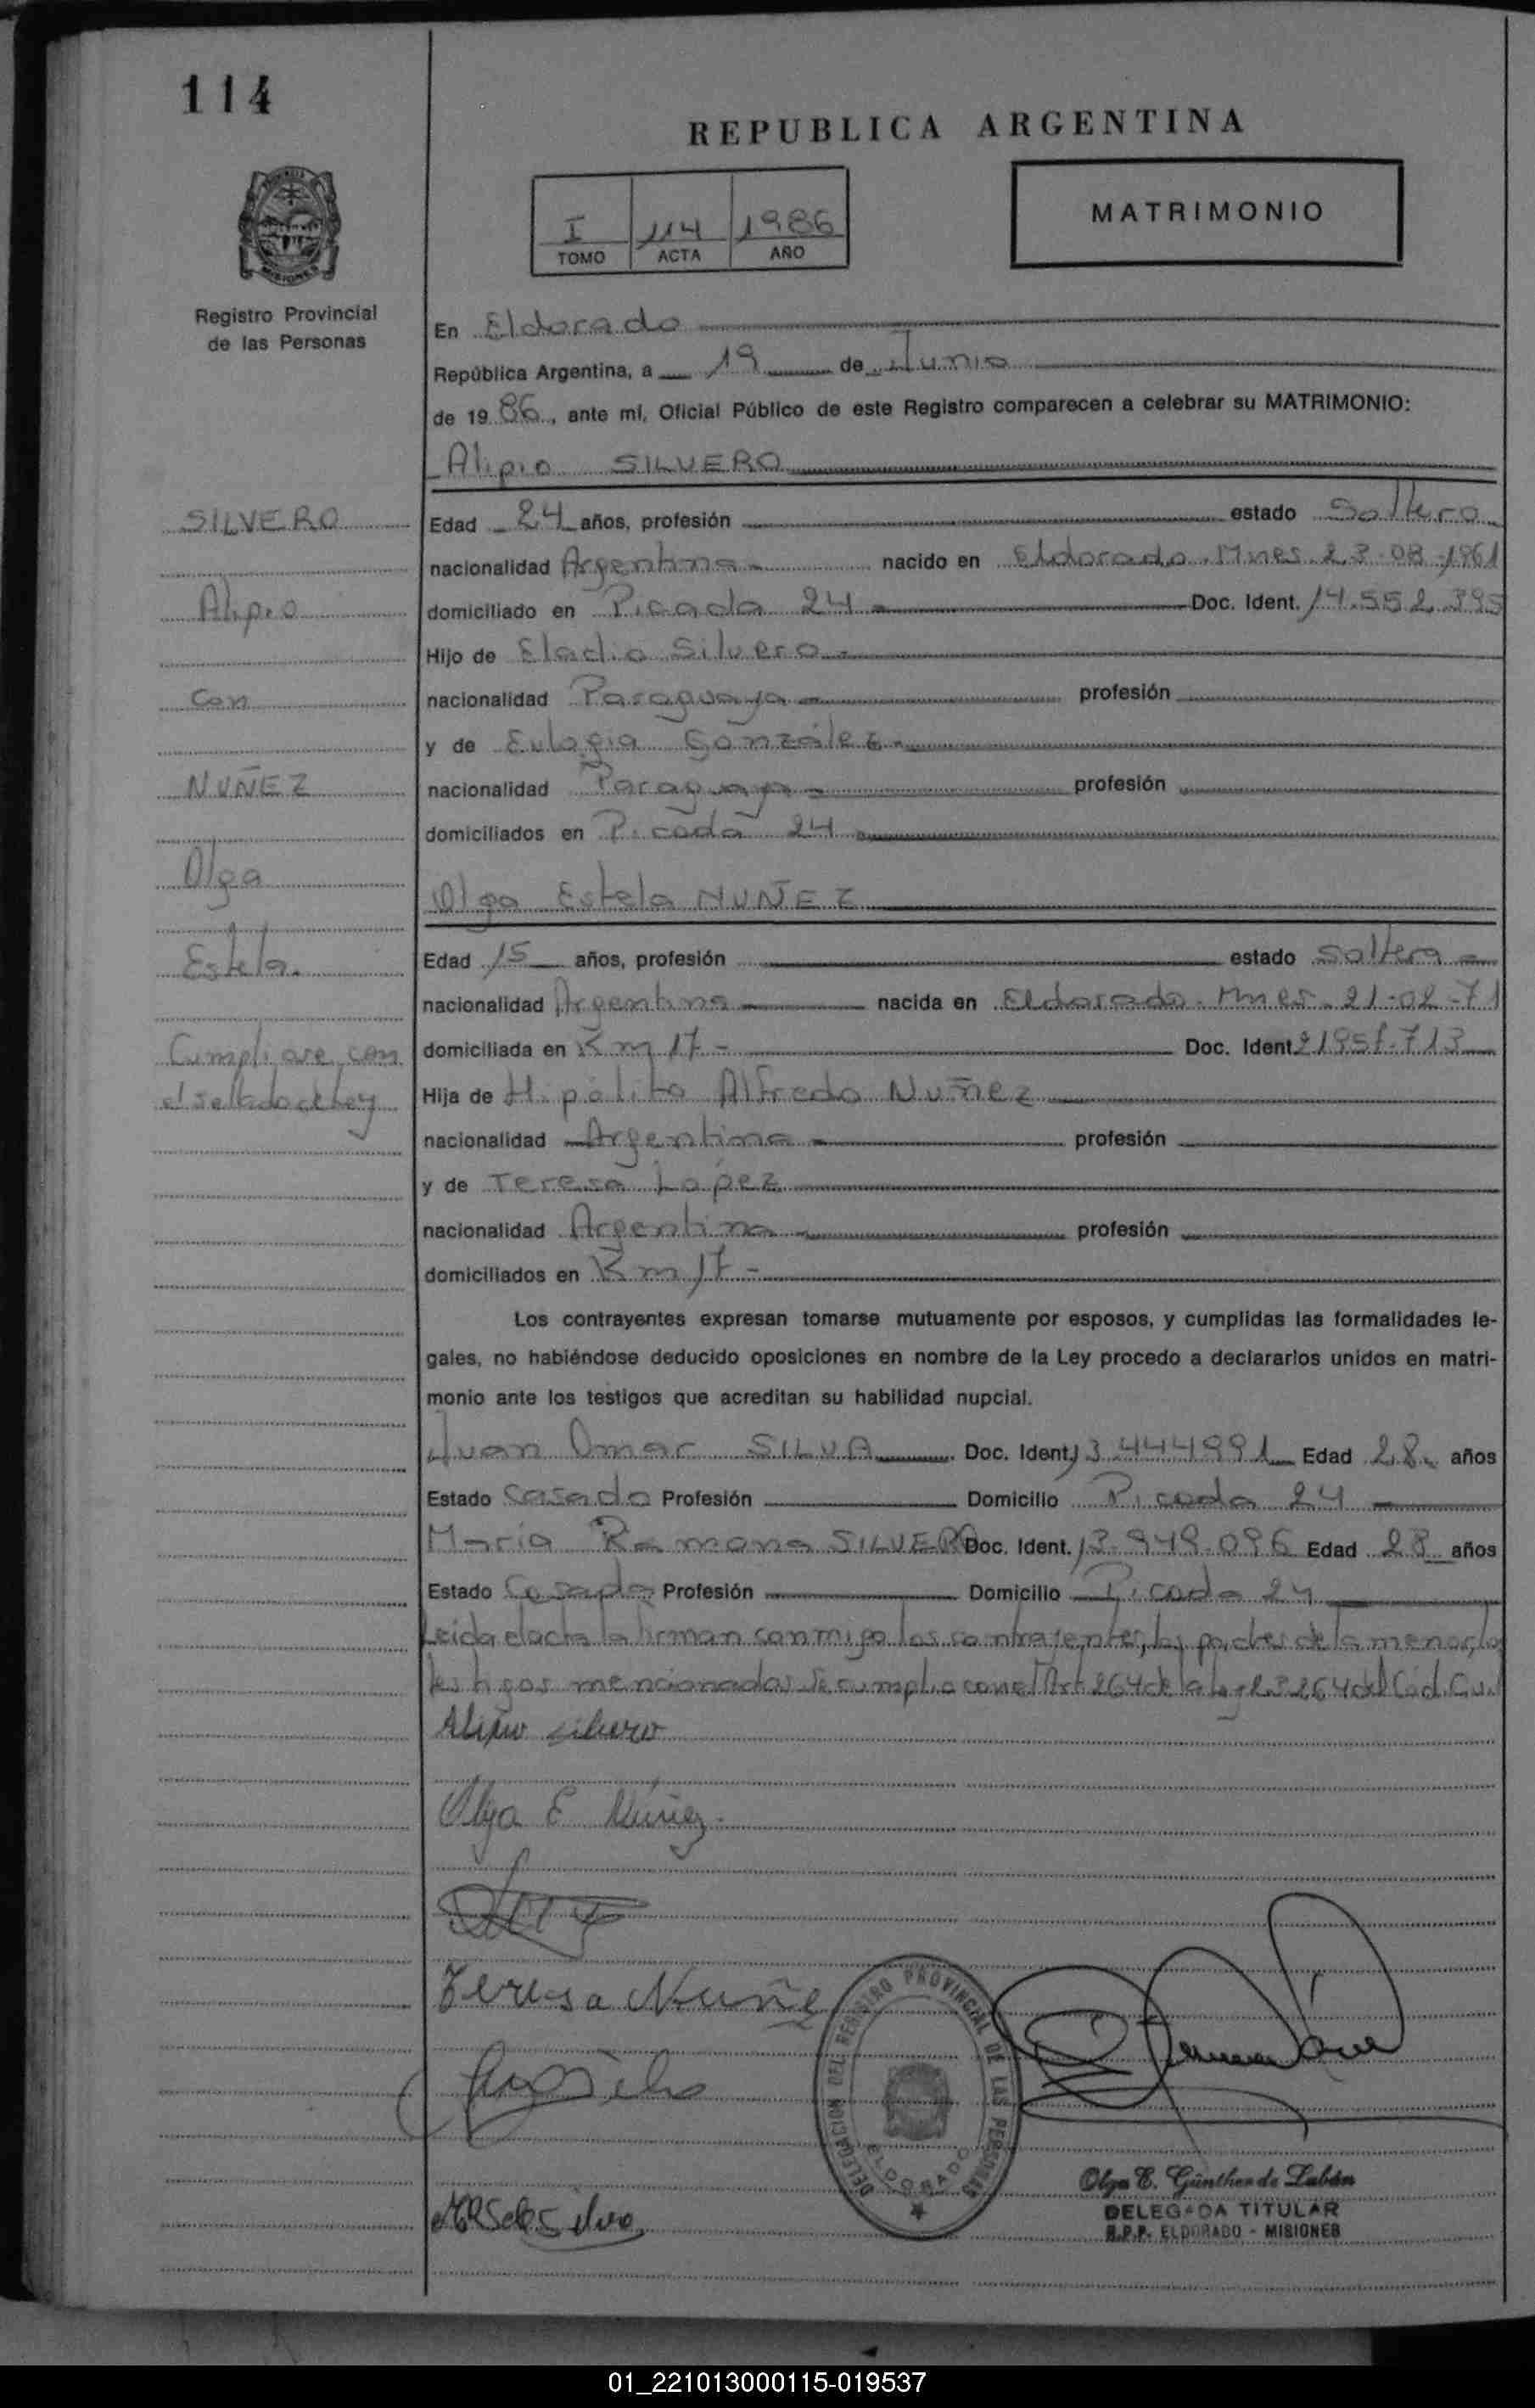 114
REPUBLICA ARGENTINA
I 114 1986
TOMO ACTA AÑO
MATRIMONIO
Registro Provincial
de las Personas
En Eldorado
República Argentina, a 19 de Junio
de 1986, ante mí, Oficial Público de este Registro comparecen a celebrar su MATRIMONIO:
Alipio SILVERO
SILVERO
Alipio
Con
NUÑEZ
Olga
Estela.
Cumpliose con
el sellado de Ley
Edad 24 años, profesión estado Soltero
nacionalidad Argentina nacido en Eldorado. Mnes. 23-08-1961
domiciliado en Picada 24 Doc. Ident. 14.552.395
Hijo de Eladio Silvero
nacionalidad Paraguaya profesión
y de Eulogia González
nacionalidad Paraguaya profesión
domiciliados en Picada 24
Olga Estela NUÑEZ
Edad 15 años, profesión estado Soltera
nacionalidad Argentina nacida en Eldorado. Mnes. 21-02-71
domiciliada en Km 17 - Doc. Ident. 21951.713
Hija de Hipólito Alfredo Nuñez
nacionalidad Argentina profesión
y de Teresa López
nacionalidad Argentina profesión
domiciliados en Km 17 -
Los contrayentes expresan tomarse mutuamente por esposos, y cumplidas las formalidades le-
gales, no habiéndose deducido oposiciones en nombre de la Ley procedo a declararlos unidos en matri-
monio ante los testigos que acreditan su habilidad nupcial.
Juan Omar SILVA Doc. Ident. 13.444991 Edad 28 años
Estado Casado Profesión Domicilio Picada 24
María Ramona SILVERO Doc. Ident. 13.949.096 Edad 28 años
Estado Casada Profesión Domicilio Picada 24
Leida el acta la firman conmigo los contrayentes, los padres de la menor, los
testigos mencionados. Se cumplio con el Art. 264 de la Ley 23264 del Cód. Civil
Alipio Silvero
Olga E Núñez.
Teresa Nuñe
DELEGACION DEL REGISTRO PROVINCIAL DE LAS PERSONAS
ELDORADO
Olga E. Günther de Labán
DELEGADA TITULAR
R.P.P. ELDORADO - MISIONES
01_221013000115-019537